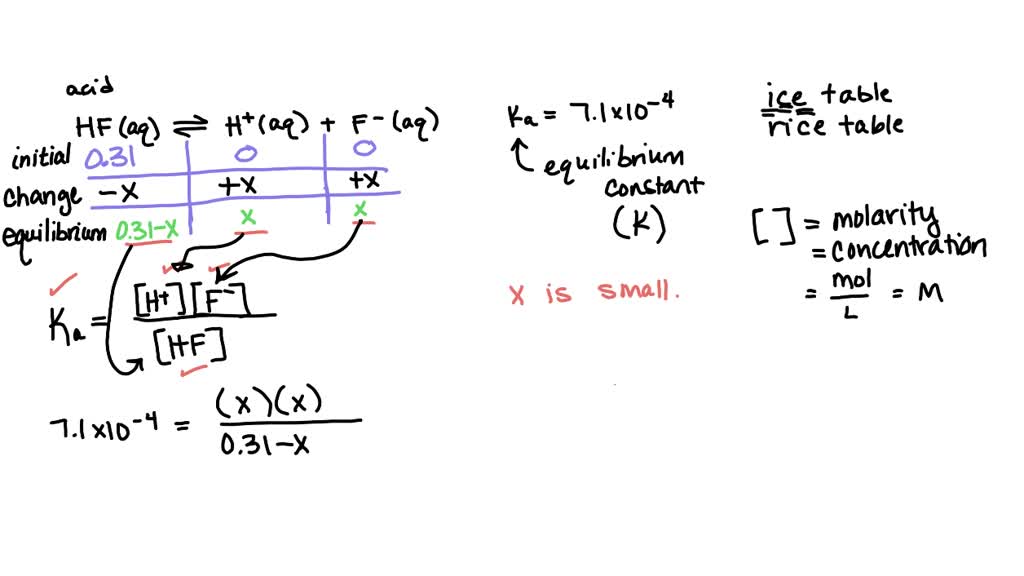 acid
HF(aq) ⇌ H⁺(aq) + F⁻(aq)
initial 0.31 0 0
change -x +x +x
equilibrium 0.31-x x x
Ka = [H⁺][F⁻]
[HF]
7.1x10⁻⁴ = (x)(x)
0.31-x
Ka = 7.1x10⁻⁴
equilibrium
constant
(K)
x is small.
ice table
rice table
[ ] = molarity
= concentration
= mol = M
L